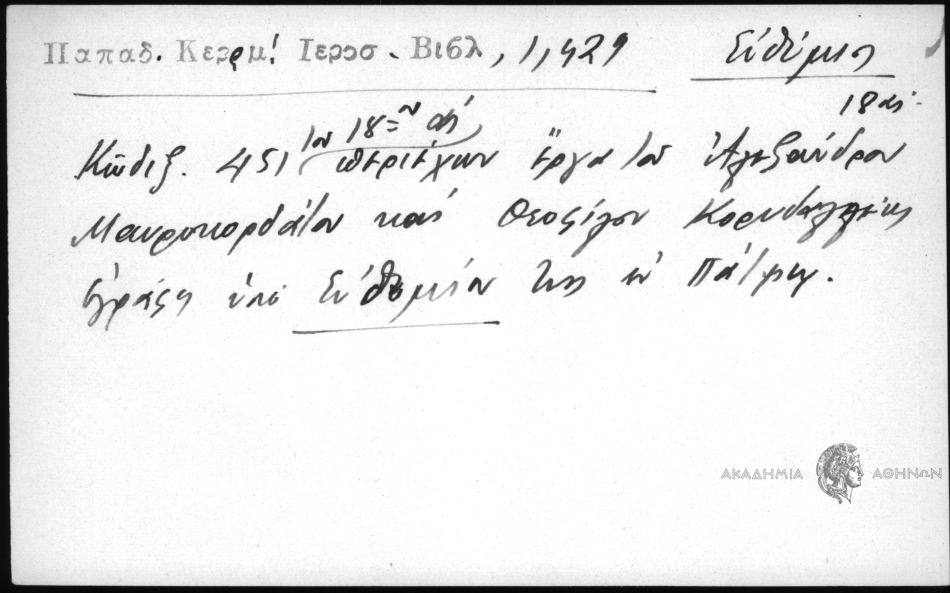 Παπαδ. Κερμ! Ιεροσ. Βιβλ, 1, 429 Εὐθύμιος
18 αἰ.
Κῶδιξ. 451 τοῦ 18ου αἰ περιέχων ἔργα τοῦ Ἀλεξάνδρου
Μαυροκορδάτου καὶ Θεοφίλου Κορυδαλλέως
ἐγράφη ὑπὸ Εὐθυμίου τῆς ἐν Πάτμῳ.
ΑΚΑΔΗΜΙΑ ΑΘΗΝΩΝ